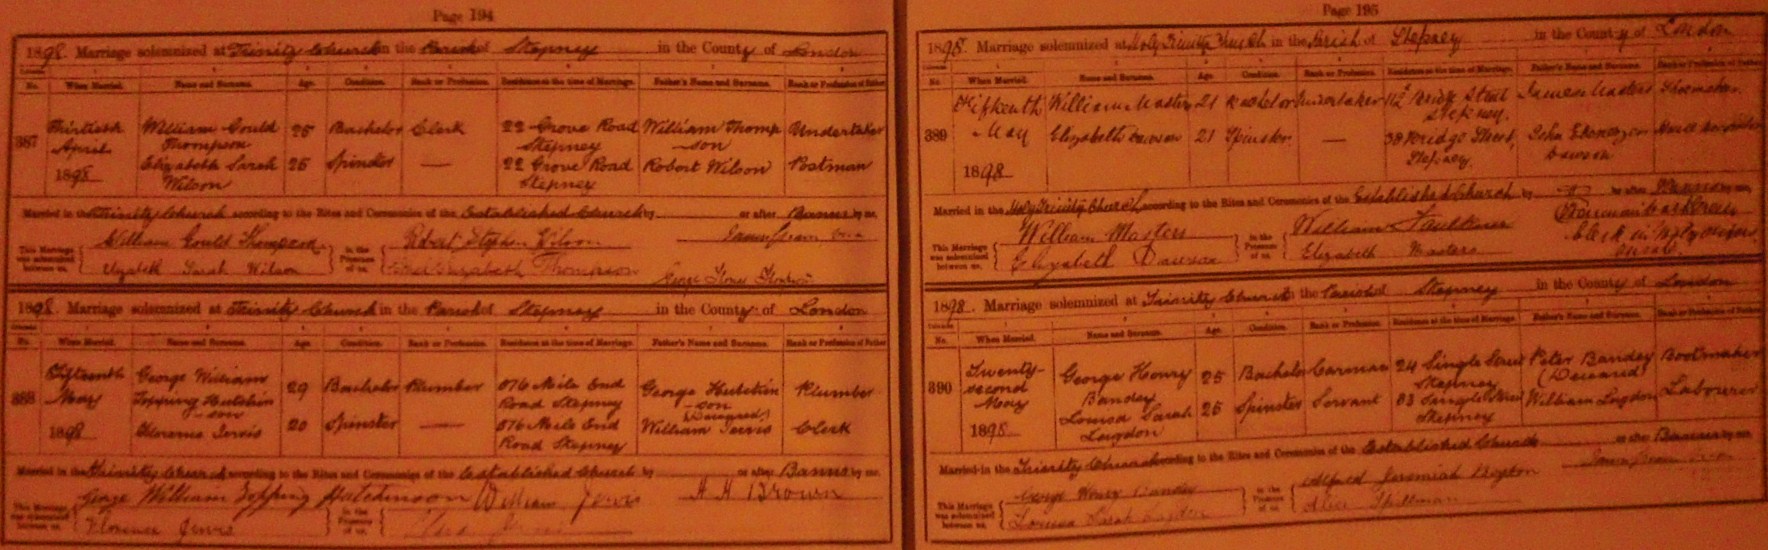 Page 194
1898. Marriage solemnized at Trinity Church in the Parish of Stepney in the County of London
No. When Married. Name and Surname. Age. Condition. Rank or Profession. Residence at the time of Marriage. Father's Name and Surname. Rank or Profession of Father
387 Thirtieth April 1898 William Gould Thompson 25 Bachelor Clerk 22 Grove Road Stepney William Thompson Undertaker
Elizabeth Sarah Wilson 25 Spinster — 22 Grove Road Stepney Robert Wilson Postman
Married in the Trinity Church according to the Rites and Ceremonies of the Established Church by or after Banns by me,
This Marriage was solemnized between us, William Gould Thompson in the Presence of us, Robert Stephen Wilson
Elizabeth Sarah Wilson Elizabeth Thompson
1898. Marriage solemnized at Trinity Church in the Parish of Stepney in the County of London
No. When Married. Name and Surname. Age. Condition. Rank or Profession. Residence at the time of Marriage. Father's Name and Surname. Rank or Profession of Father
388 Fifteenth May 1898 George William Topping Hutchinson 29 Bachelor Plumber 576 Mile End Road Stepney George Hutchinson (Deceased) Plumber
Florence Jervis 20 Spinster — 576 Mile End Road Stepney William Jervis Clerk
Married in the Trinity Church according to the Rites and Ceremonies of the Established Church by or after Banns by me,
This Marriage was solemnized between us, George William Topping Hutchinson in the Presence of us, William Jervis H H Brown
Florence Jervis
Page 195
1898. Marriage solemnized at Holy Trinity Church in the Parish of Stepney in the County of London
No. When Married. Name and Surname. Age. Condition. Rank or Profession. Residence at the time of Marriage. Father's Name and Surname. Rank or Profession of Father
389 Fifteenth May 1898 William Masters 21 Bachelor Undertaker Stepney. James Masters Shoemaker
Elizabeth Dawson 21 Spinster — 38 Bridge Street, Stepney. John Ebenezer Dawson
Married in the Holy Trinity Church according to the Rites and Ceremonies of the Established Church by or after Banns by me,
This Marriage was solemnized between us, William Masters in the Presence of us, William Faulkner
Elizabeth Dawson Elizabeth Masters
1898. Marriage solemnized at Trinity Church in the Parish of Stepney in the County of London
No. When Married. Name and Surname. Age. Condition. Rank or Profession. Residence at the time of Marriage. Father's Name and Surname. Rank or Profession of Father
390 Twenty-second May 1898 George Henry Bandey 25 Bachelor Carman 24 Single Street Stepney Peter Bandey (Deceased) Bootmaker
Louisa Sarah Lugdon 25 Spinster Servant 83 Single Street Stepney William Lugdon Labourer
Married in the Trinity Church according to the Rites and Ceremonies of the Established Church or after Banns by me,
This Marriage was solemnized between us, George Henry Bandey in the Presence of us, Alfred Jeremiah
Louisa Sarah Lugdon Alice Spillman